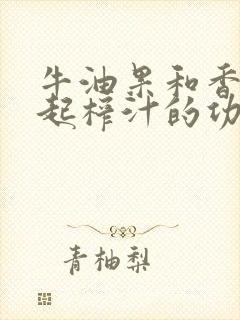 牛油果和香
起榨汁的功
青柚梨